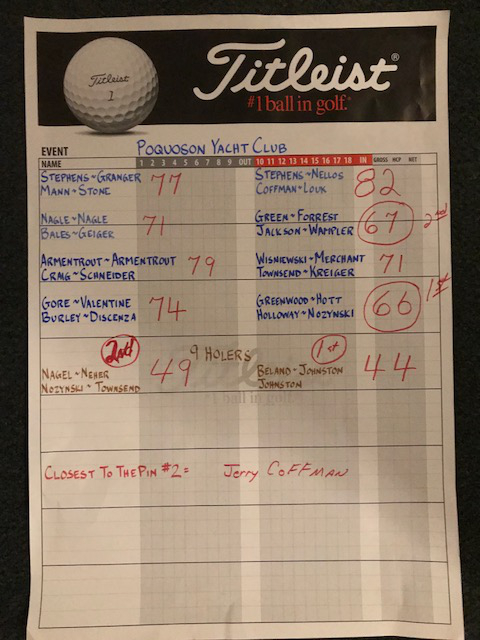 Titleist
1
Titleist®
#1 ball in golf.™
EVENT POQUOSON YACHT CLUB
NAME 1 2 3 4 5 6 7 8 9 OUT 10 11 12 13 14 15 16 17 18 IN GROSS HCP NET
STEPHENS~GRANGER
MANN~STONE
77
STEPHENS~NELLOS
COFFMAN~LOUK
82
NAGLE~NAGLE
BALES~GEIGER
71
GREEN~FORREST
JACKSON~WAMPLER
67
2nd
ARMENTROUT~ARMENTROUT
CRAIG~SCHNEIDER
79
WISNIEWSKI~MERCHANT
TOWNSEND~KREIGER
71
GORE~VALENTINE
BURLEY~DISCENZA
74
GREENWOOD~HOTT
HOLLOWAY~NOZYNSKI
66
1st
9 HOLERS
2nd
NAGEL~NEHER
NOZYNSKI~TOWNSEND
49
1st
BELAND~JOHNSTON
JOHNSTON
44
#1 ball in golf.
CLOSEST TO THE PIN #2 = Jerry COFFMAN